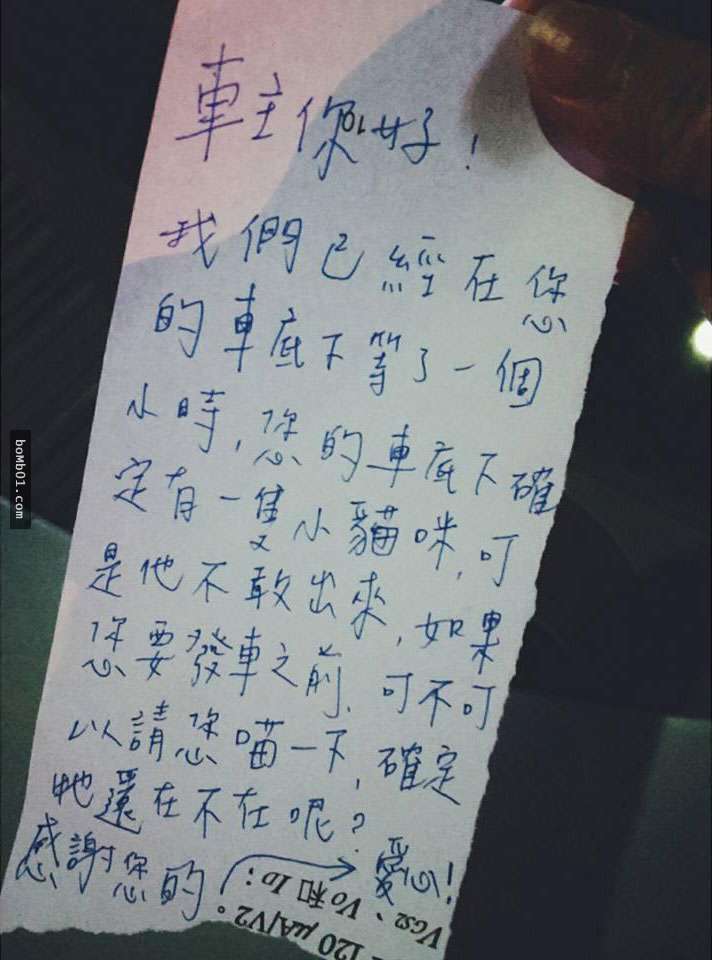 車主你好!
我們已經在您
的車底下等了一個
小時,您的車底下確
定有一隻小貓咪,可
是他不敢出來,如果
您要發車之前,可不可
以請您喵一下,確定
牠還在不在呢?
感謝您的愛心!
VGS2、VO和ID:
= 120 μA/V2。
10
boMb01.com